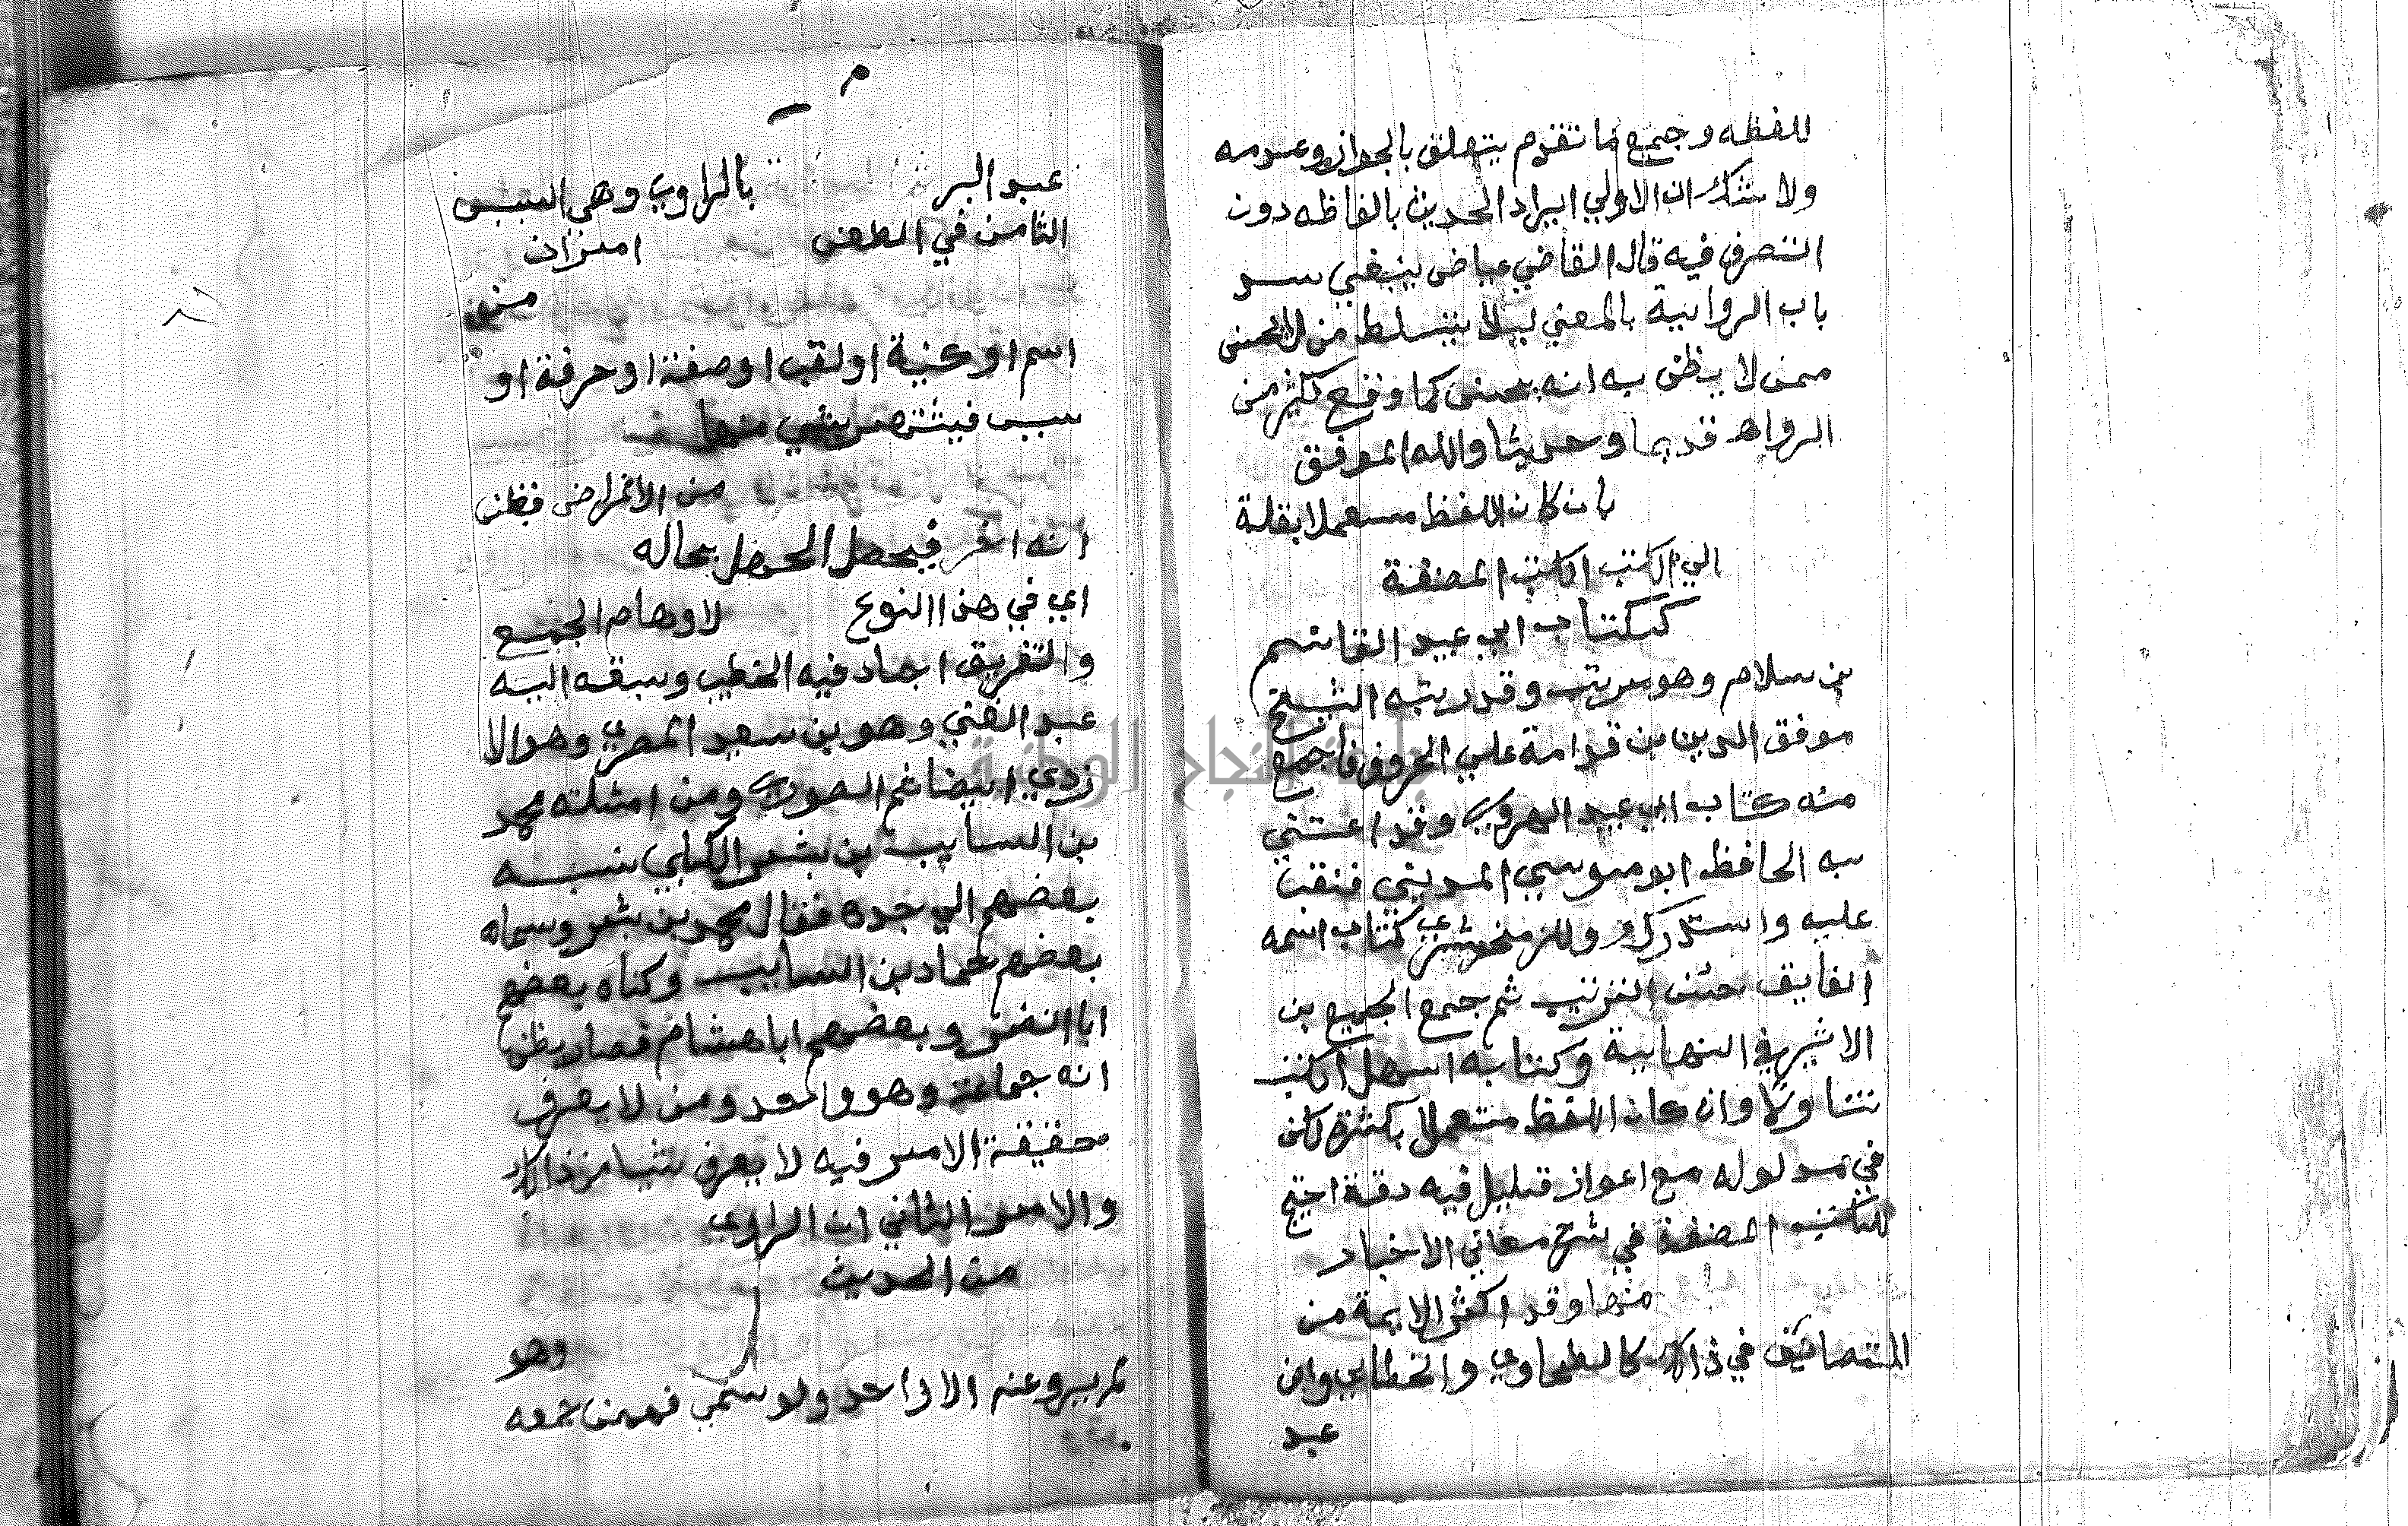 للفظه وجميع ما تقدم يتعلق بالجواز وعدمه
ولا شك ان الاولي ايراد الحديث بالفاظه دون
التصرف فيه قال القاضي عياض ينبغي سد
باب الرواية بالمعني ليلا يتسلط من لا يحسن
ممن لا يظن به انه يحسن كما وقع كثير من
الرواه قديما وحديثا والله الموفق
بان كان اللفظ مستعملا بقلة
الي الكتب الكتب المصنفة
ككتاب ابي عبيد القاسم
بن سلام وهو مرتب وقد رتبه الشيخ
موفق الدين بن قدامة علي الحروف فاجمع
منه كتاب ابي عبيد الهروي وقد اعتني
به الحافظ ابو موسي المديني فنقب
عليه واستدرك وللزمخشري كتاب اسمه
الفايق حسن الترتيب ثم جمع الجميع بن
الاثير في النهاية وكتابه اسهل الكتب
تناولا وان كان اللفظ مستعملا بكثرة لكن
في مدلوله مع اعواز قليل فيه دقة احتيج
للكتب المصنفة في شرح معاني الاخبار
منها وقد اكثر الايمة من
التصانيف في ذالك كالطحاوي والخطابي وابن
عبد
عبد البر بالراوي وهي السبب
الثامن في الطعن امران
منهي
اسم او كنية او لقب او صفة او حرفة او
سبب فيشتهر بشي منها
من الاغراض فيظن
انه اخر فيحصل الجهل بحاله
اي في هذا النوع لاوهام الجمع
والتفريق اجاد فيه الخطيب وسبقه اليه
عبد الغني وهو بن سعيد المصري وهو الا
زدي ايضا ثم الصوري ومن امثلته محمد
بن السايب بن بشر الكلبي نسبه
بعضهم الي جده فقال محمد بن بشر وسماه
بعضهم حماد بن السايب وكناه بعضهم
ابا النضر وبعضهم ابا هشام فصار يظن
انه جماعة وهو واحد ومن لا يعرف
حقيقة الامر فيه لا يعرف شيا من ذالك
والامر الثاني ان الراوي
من الحديث
وهو
لم يرو عنه الا واحد ولو سمي فممن جمعه
جامعة النجاح الوطنية